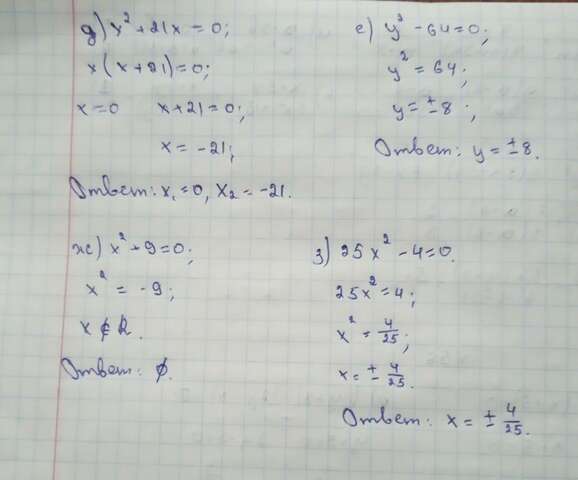 д) x² + 21x = 0;
x(x + 21) = 0;
x = 0 x + 21 = 0;
x = -21;
Ответ: x₁ = 0, x₂ = -21.
е) y² - 64 = 0;
y² = 64;
y = ±8;
Ответ: y = ±8.
ж) x² + 9 = 0;
x² = -9;
x ∉ R.
Ответ: ∅.
з) 25x² - 4 = 0.
25x² = 4;
x² = 4/25;
x = ± 4/25.
Ответ: x = ± 4/25.